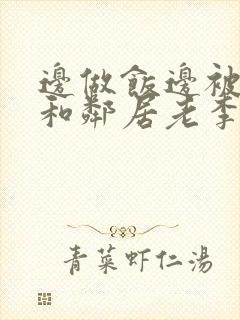 邊做飯邊被
和鄰居老李
青菜虾仁湯